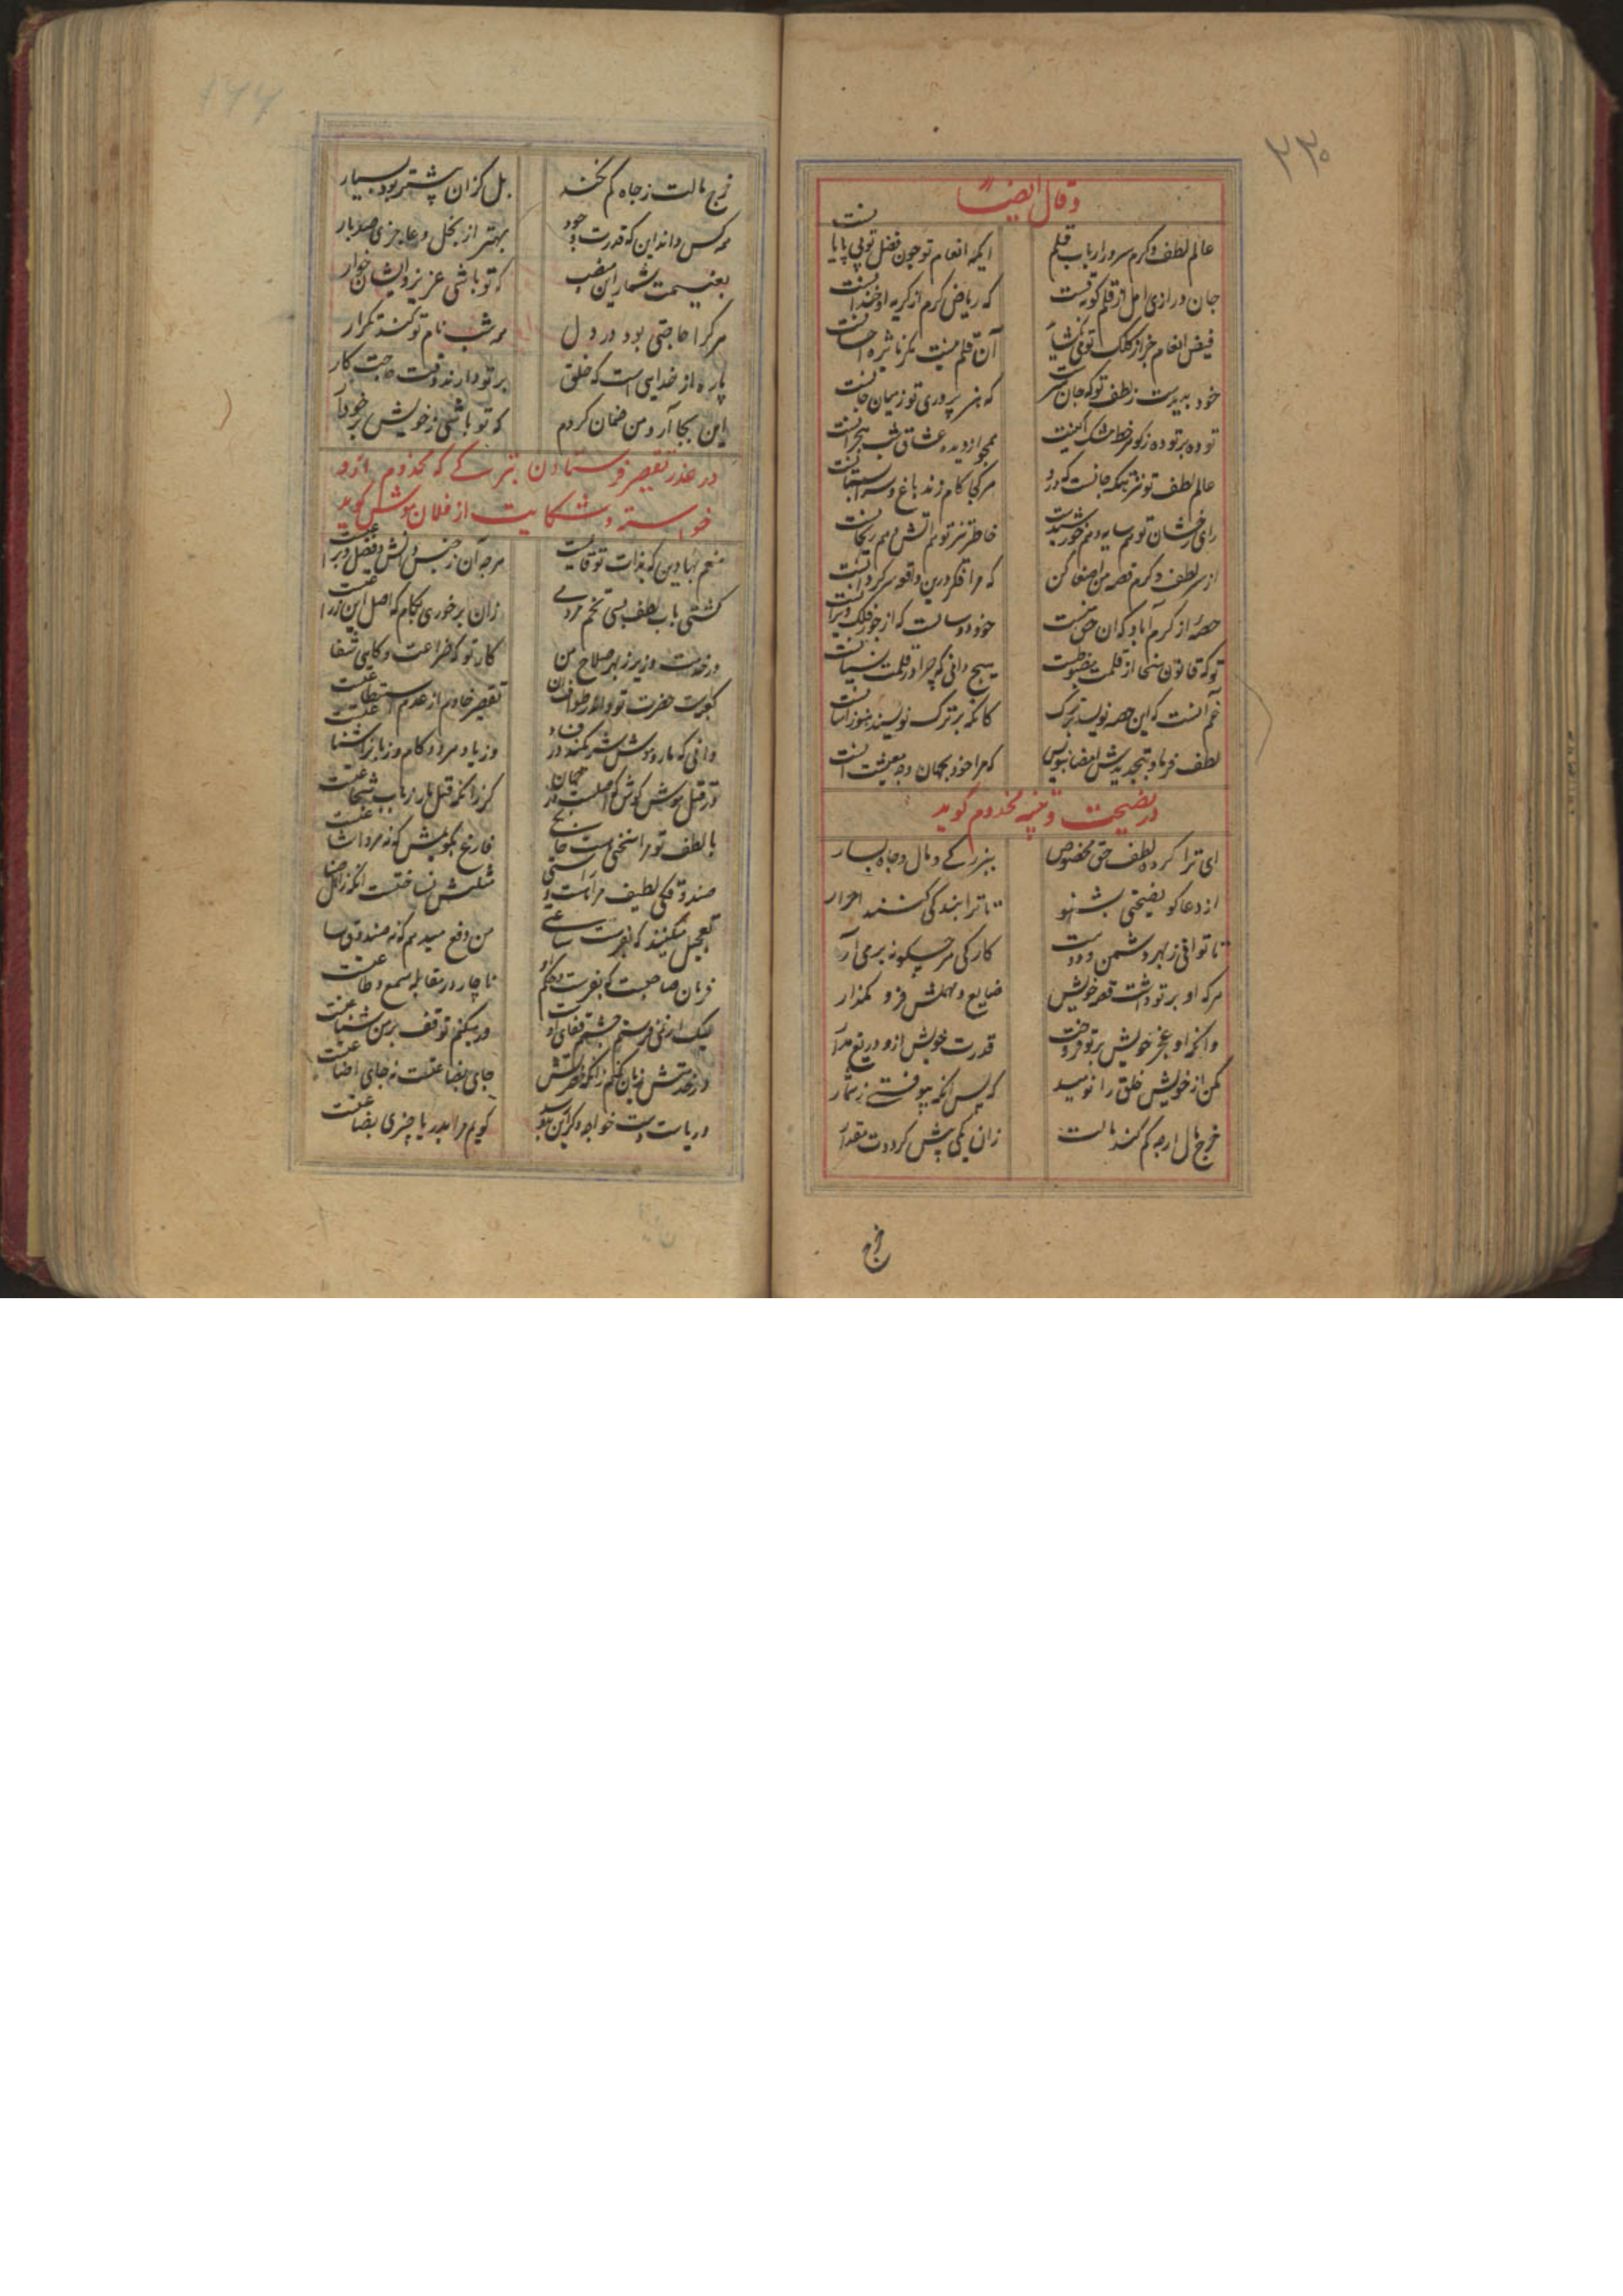 ۲۳۰
وقال ایضاً
عالم لطف و کرم سرور ارباب قلم ایکه انعام تو چون فضل تو بی پایانست
جان درازی امل از قلم کوته تست که ریاض کرم از کریه او خندانست
فیض انعام جز از کلک تو می آن قلم نیست مکر احسانست
خود پدیدست ز لطف تو که جان که هنر پروری تو ز میان جانست
توده بر توده ز کافور خط مشک همچو از دیده عشاق شب هجرانست
عالم لطف تو نزهتکه جانست که درو هر کجا کام زند باغ و سرابستانست
رای رخشان تو هم سایه و هم خورشیدست خاطر تیز تو هم آتش و هم ریحانست
از سر لطف و کرم قصه من اصغا کن که مرا فکر درین واقعه سرکردانست
حصه از کرم آباد که آن حق منست خود دو سالست که از جور فلک ویرانست
تو که قانون سخا از قلمت مضبوطست هیچ دانی که چرا در قلمت نسیانست
غم آنست که این حصه نویسد بترک کانکه بر ترک نویسند هنوز آسانست
لطف فرما و بتجدیدش امضا بنویس که مرا خود بجهان وجه معیشت آنست
در نصیحت و تنبیه مخدوم گوید
ای ترا کرده لطف حق مخصوص ببزرکی و مال و جاه و یسار
از دعاگو نصیحتی بشنو تا ترا بندکی کنند احرار
تا توانی ز بهر دشمن و دوست کار کی هر چکونه بر می آر
هر که او بر تو داشت قصه خویش ضایع و مهملش فرو مکذار
وانکه او عجز خویش بر تو فروخت قدرت خویش ازو دریغ مدار
مکن از خویش خلق را نومید که پس انکه بیوفتی ز شمار
خرج مال ار چه کم کند مالت زان یکی بیش کرددت مقدار
خرج
۱۴۴
خرج مالت ز جاه کم نکند بل کزان بیشتر بود بسیار
همه کس داند این که قدرت و جود بهتر از بخل و عاجزی صد بار
بغنیمت شمار این منصب که تو باشی عزیز و ایشان خوار
هر کرا حاجتی بود در دل همه شب نام تو کند تکرار
پاره از خدایی است که خلق بر تو دارند وقت حاجت کار
این بجا آر و من ضمان کردم که تو باشی ز خویش برخوردار
در عذر تقصیر فرستادن تبرکی که مخدوم ازو
خواسته و شکایت از فلان موش گوید
منعم بها دین که بذات تو قایمست هرچه آن ز جنس دانش و فضل و براعتست
کشتی بآب لطف بسی تخم مردمی زان بر خوری بکام که اصل این زراعتست
در خدمت وزیر ز بهر صلاح من کار تو که ضراعت و کاهی شفاعتست
تقصیر خادم از عدم استطاعتست
دانی که مار و موش
در قتل موش کوش که کز آنکه قتل مار ز باب شجاعتست
با لطف تو مرا سخنی هست حاجتی فارغ بکویمش که نه مرد اشاعتست
صندوقکی لطیف مرا هست مثلش نساختست انکه ز اهل صناعتست
تعجیل میکنند که بفرست ساعتی من دفع میدهم که نه صندوق ساعتست
فرمان صاحبست که بفرست و حکم او ناچار در مقابله سمع و طاعتست
لیک ار نمی فرستم چشمم قفای اوست ور میکنم توقف بر من شناعتست
در خدمتش زیان نکنم زانکه حضرتش جای بضاعتست نه جای اضاعتست
دریاست دست خواجه و کر این بدو رسد کویم مرا بدریا چیزی بضاعتست